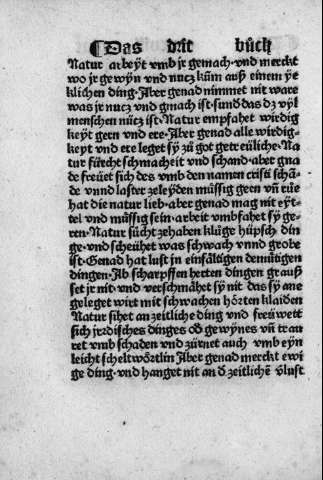 ¶Das drit bůch
Natur arbeyt vmb jr gemach·vnd merckt
wo jr gewyn vnd nucz kům auß einem ye
klichen ding·Aber genad nimmet nit ware
was jr nucz vnd gmach ist·sund das dz vyl
menschen nücz ist·Natur empfahet wirdig
keyt gern vnd ere·Aber genad alle wirdig-
keyt vnd ere leget sy zů got getreüliche·Na
tur fürcht schmacheit vnd schand·aber gna
de freüet sich des vmb den namen cristi schā-
de vnnd laster zeleyden müssig geen vn̄ růe
hat die natur lieb·aber genad mag nit eyt-
tel vnd müssig sein·arbeit vmbfahet sy ge-
ren·Natur sůcht zehaben klůge hüpsch din
ge·vnd scheühet was schwach vnnd grobe
ist·Genad hat lust in einfältigen demütigen
dingen·Ab scharpffen herten dingen grauß
set jr nit·vnd verschmähet sy nit das sy ane
geleget wirt mit schwachen hörten klaiden
Natur sihet an zeitliche ding vnd freüwett
sich jrdisches dinges od gewynes vn̄ trau
ret vmb schaden vnd zürnet auch vmb eyn
leicht scheltwörtlin Aber genad merckt ewi
ge ding·vnd hanget nit an d zeitlichē vlust